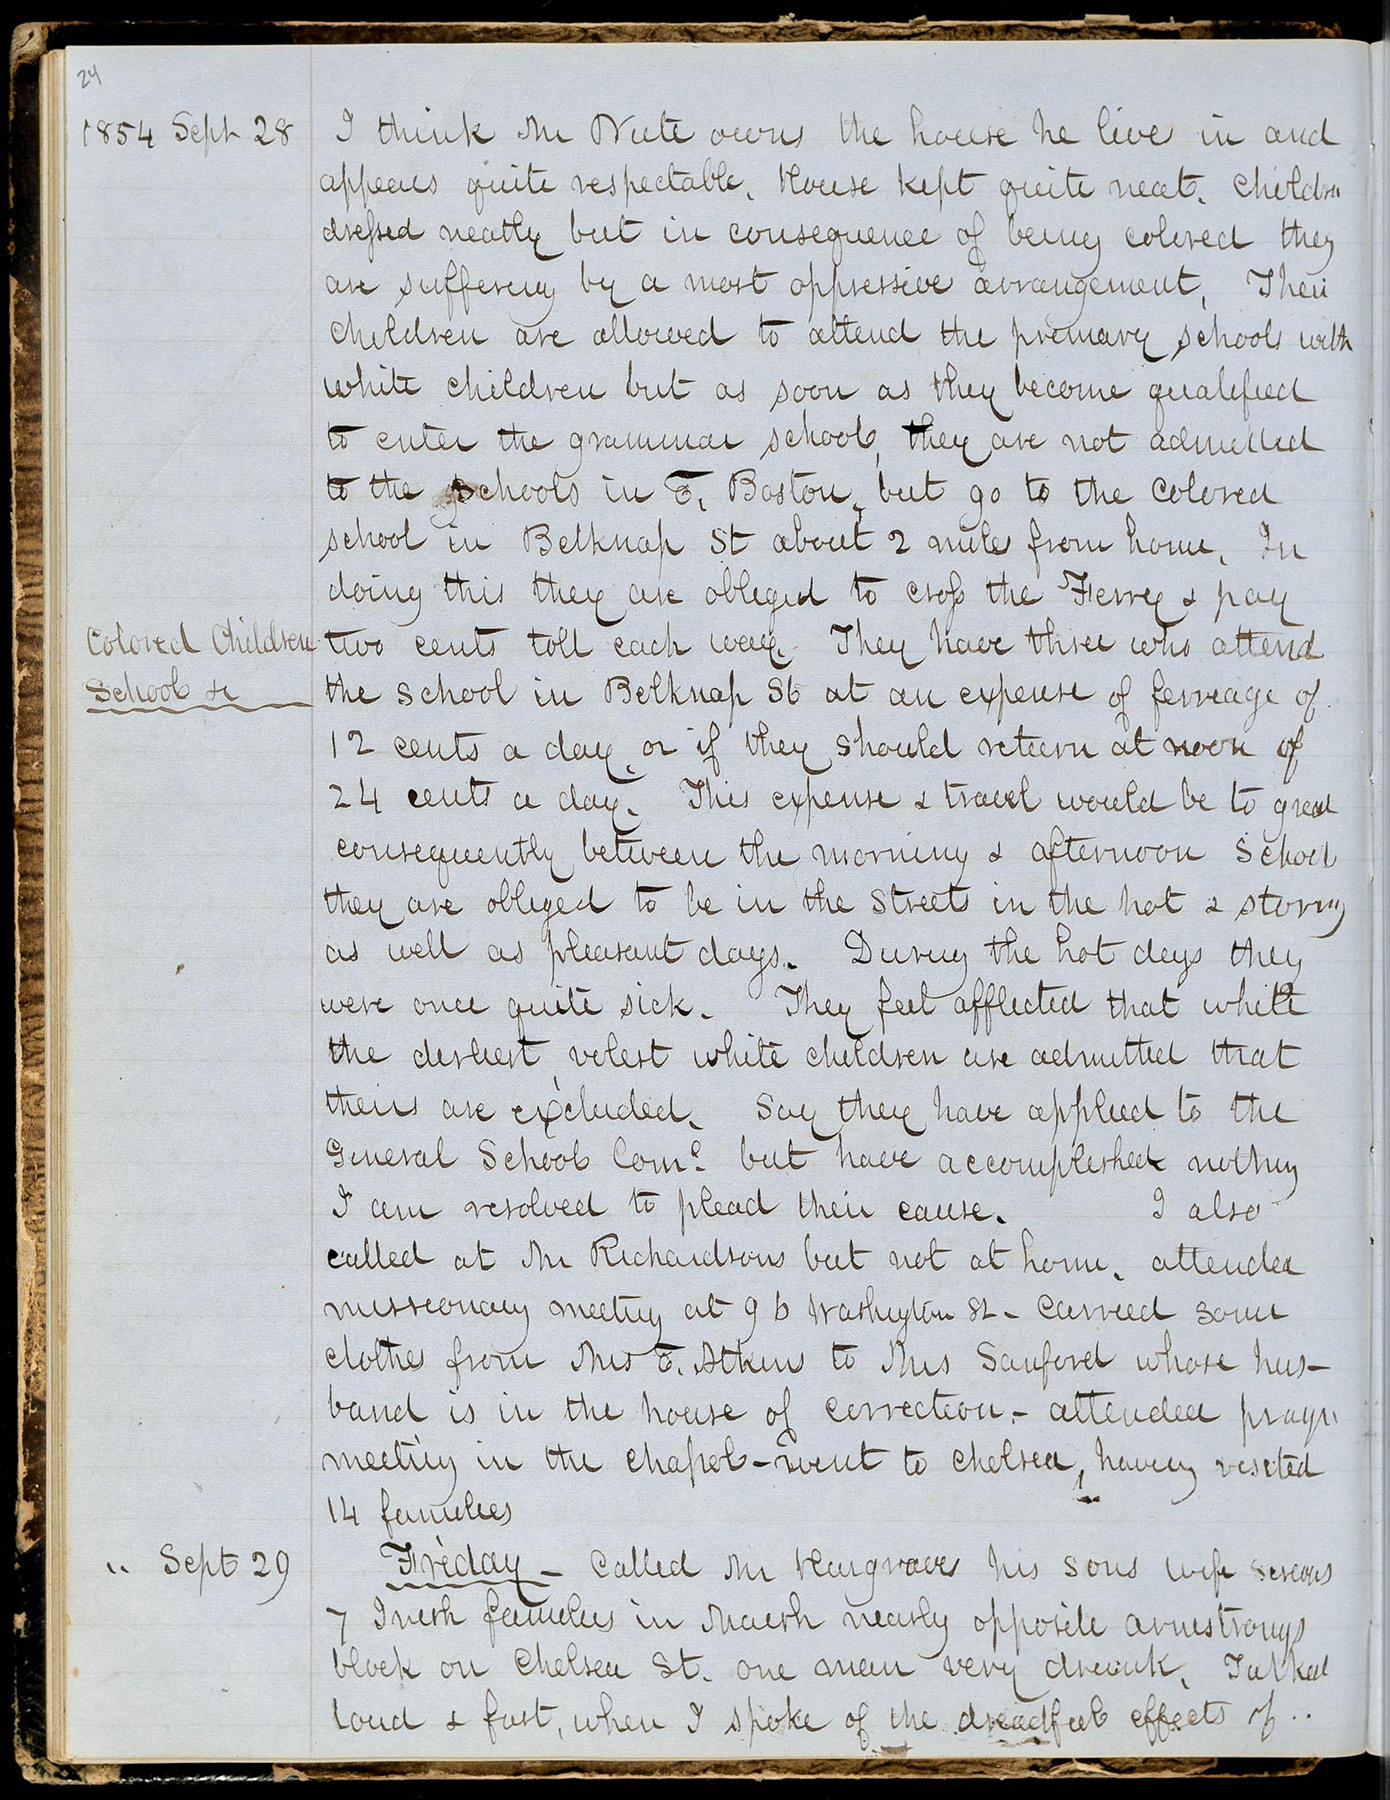 24
1854 Sept 28 I think Mr Nute owns the house he live in and
appears quite respectable. House kept quite neat. Children
dressed neatly but in consequence of being colored they
are suffering by a most oppressive arrangement, Their
children are allowed to attend the primary schools with
white children but as soon as they become qualified
to enter the grammar school, they are not admitted
to the schools in E. Boston, but go to the Colored
school in Belknap St about 2 miles from home. In
doing this they are obliged to cross the Ferry & pay
two cents toll each way. They have three who attend
Colored Children
School &c
the school in Belknap St at an expense of ferreage of
12 cents a day, or if they should return at noon of
24 cents a day. This expense & travel would be to great
consequently between the morning & afternoon School
they are obliged to be in the streets in the hot & stormy
as well as pleasant days. During the hot days they
were once quite sick. They feel afflicted that while
the dirtiest, vilest white children are admitted that
theirs are excluded. Say they have applied to the
General School Come but have accomplished nothing
I am resolved to plead their cause. I also
called at Mr Richardsons but not at home. attended
missionary meeting at 96 Washington St - Carried some
clothes from Mrs E. Atkins to Mrs Sanford whose hus-
band is in the house of correction - attended prayr
meeting in the chapel - went to Chelsea, having visited
14 families
" Sept 29 Friday - Called Mr Hargraves his sons wife
7 Irish families in Marsh nearly opposite Armstrongs
block on Chelsea St. one man very drunk. Talked
loud & fast, when I spoke of the dreadful effects of